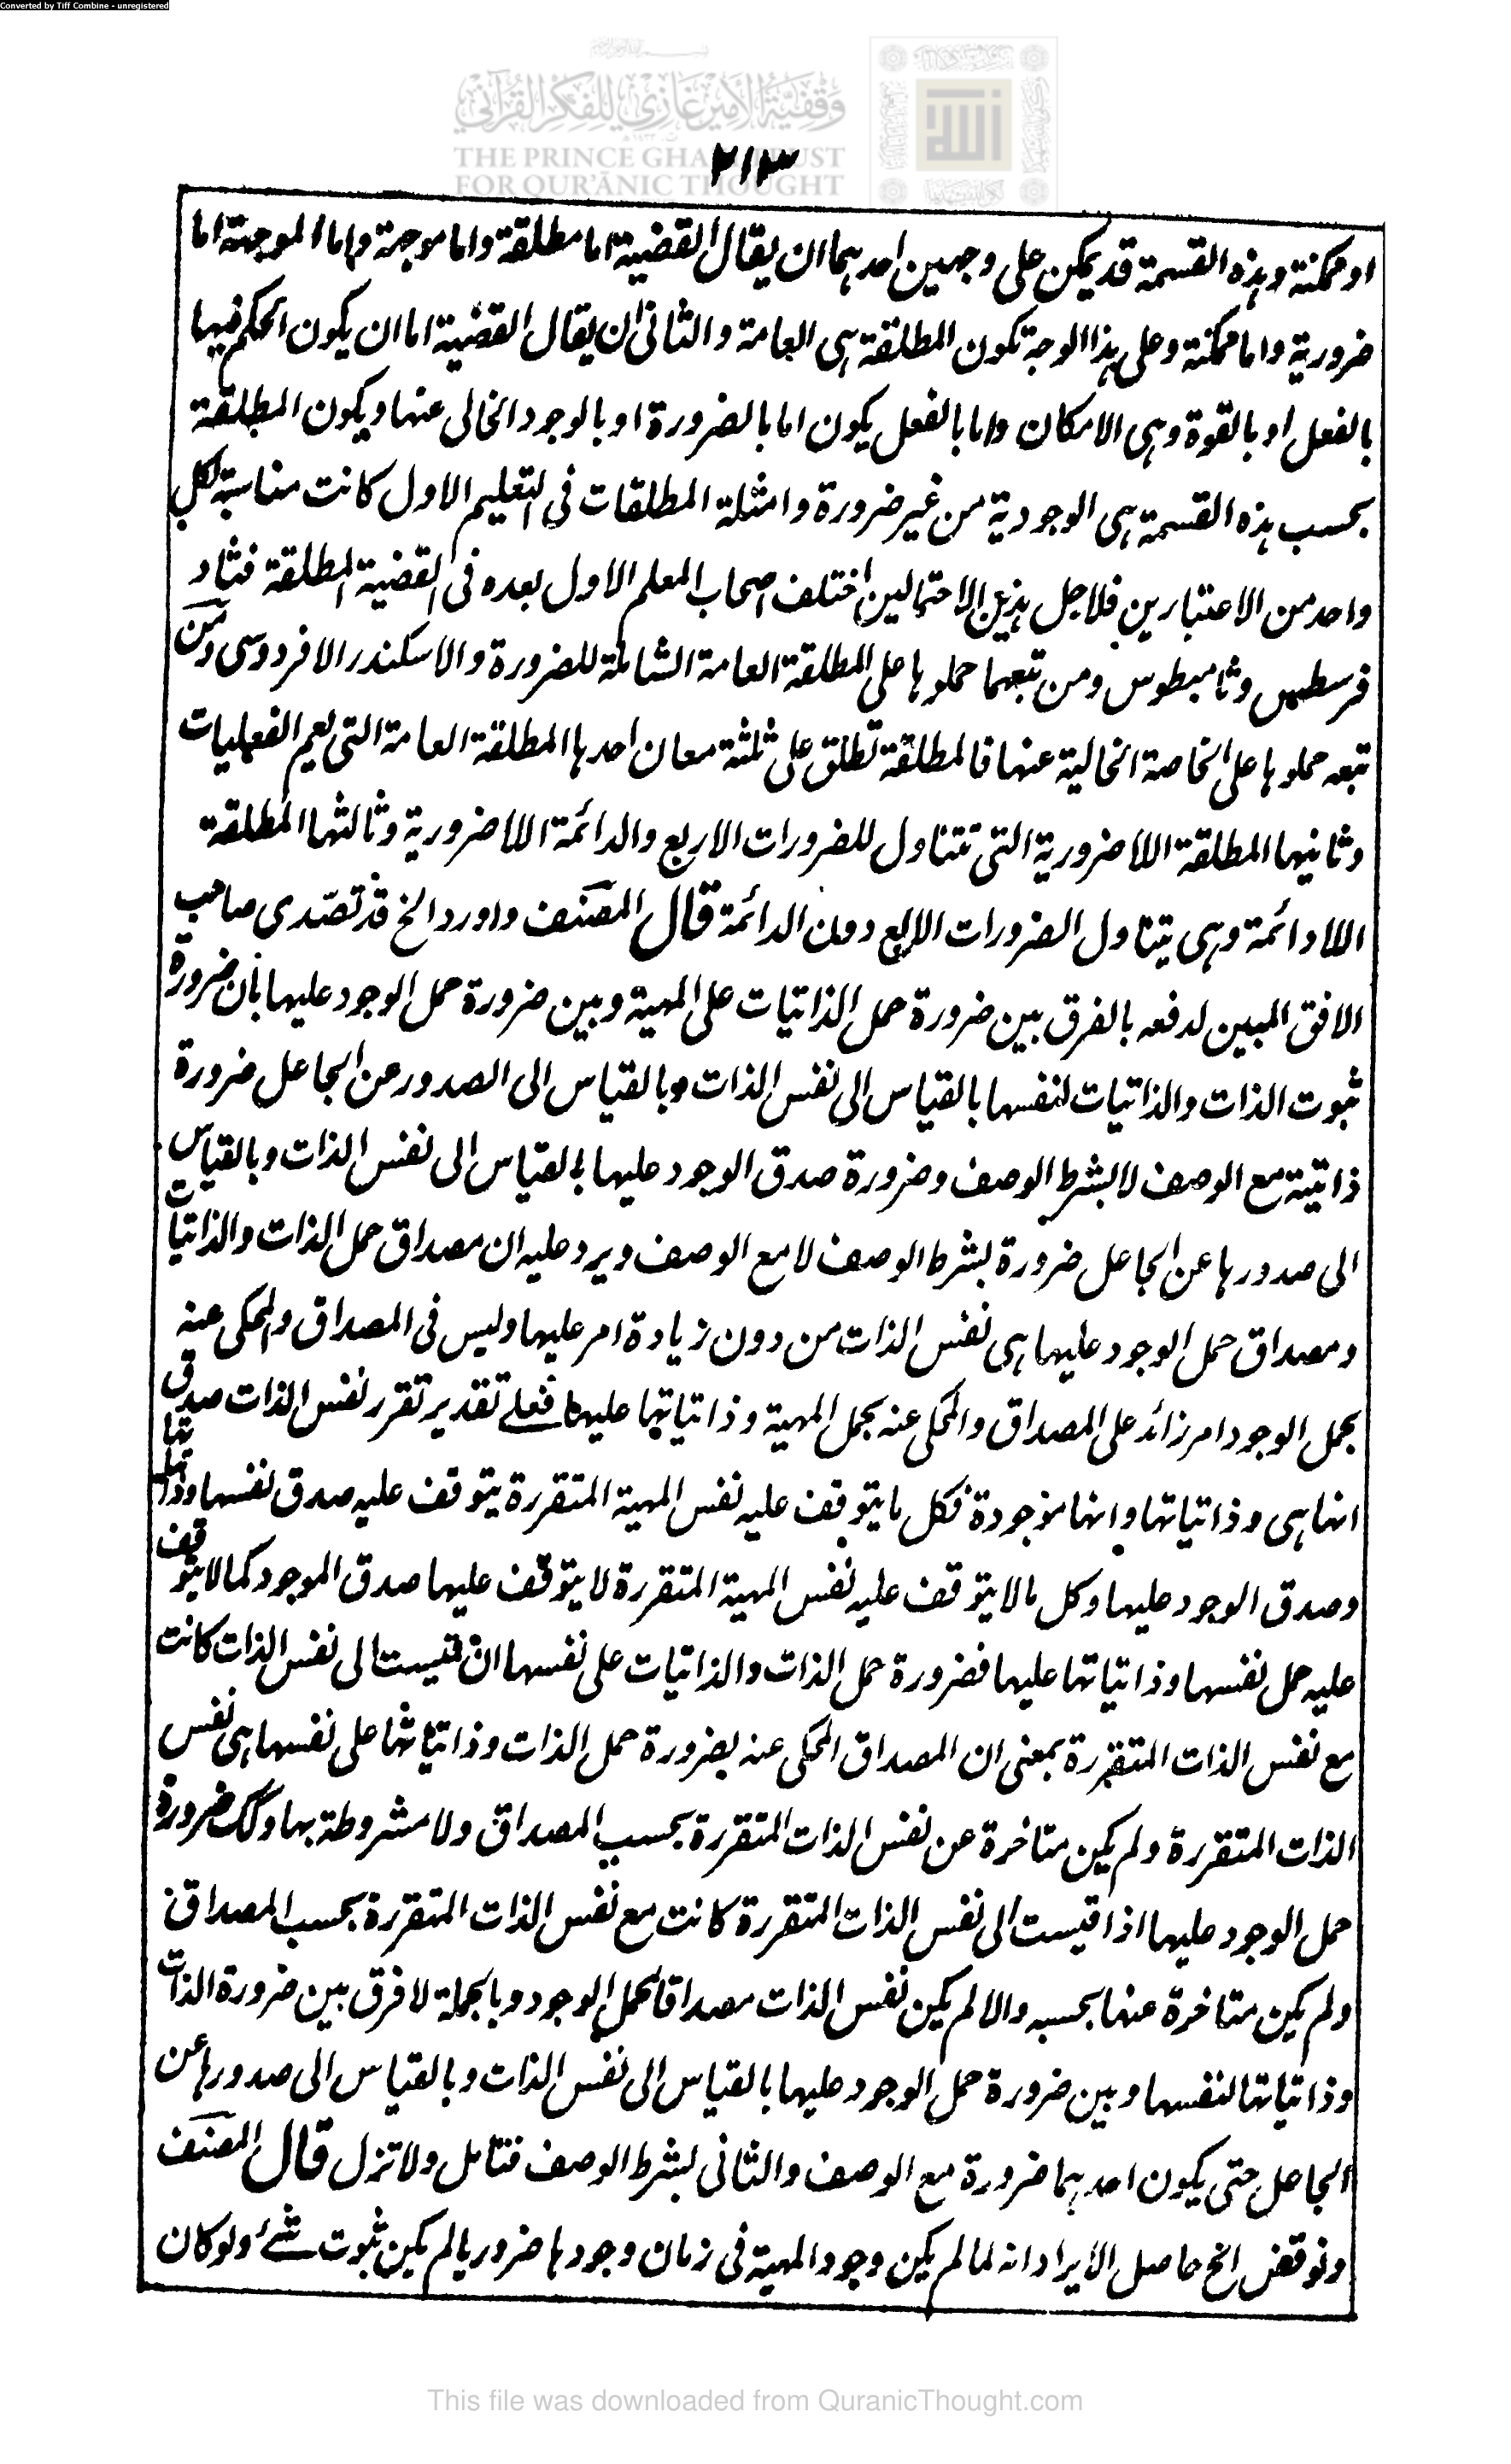 Converted by Tiff Combine - unregistered
وقفية الأمير غازي للفكر القرآني
THE PRINCE GHAZI TRUST
FOR QUR'ĀNIC THOUGHT
٢١٣
او ممكنة وهذه القسمة قد يمكن على وجهين احدهما ان يقال القضية اما مطلقة واما موجهة واما الموجهة اما
ضرورية واما ممكنة وعلى هذا الوجه تكون المطلقة هى العامة والثانى ان يقال القضية اما ان يكون الحكم فيها
بالفعل او بالقوة وهى الامكان واما بالفعل يكون اما بالضرورة او بالوجود الخالى عنها ويكون المطلقة
بحسب هذه القسمة هى الوجودية من غير ضرورة وامثلة المطلقات فى التعليم الاول كانت مناسبة لكل
واحد من الاعتبارين فلاجل هذين الاحتمالين اختلف اصحاب المعلم الاول بعده فى القضية المطلقة فثاد
فرسطيس وثامبطوس ومن تبعهما حملوها على المطلقة العامة الشاملة للضرورة والاسكندر الافردوسى ومن
تبعه حملوها على الخاصة الخالية عنها فالمطلقة تطلق على ثلثة معان احدها المطلقة العامة التى يعم الفعليات
وثانيها المطلقة اللاضرورية التى تتناول للضرورات الاربع والدائمة اللاضرورية وثالثها المطلقة
اللادائمة وهى يتناول الضرورات الاربع دون الدائمة قال المصنف واورد الخ قد تصدى صاحب
الافق المبين لدفعه بالفرق بين ضرورة حمل الذاتيات على المهية وبين ضرورة حمل الوجود عليها بأن ضرورة
ثبوت الذات والذاتيات لنفسها بالقياس الى نفس الذات وبالقياس الى الصدور عن الجاعل ضرورة
ذاتية مع الوصف لا بشرط الوصف وضرورة صدق الوجود عليها بالقياس الى نفس الذات وبالقياس
الى صدورها عن الجاعل ضرورة بشرط الوصف لا مع الوصف ويرد عليه ان مصداق حمل الذات والذاتيات
ومصداق حمل الوجود عليها هى نفس الذات من دون زيادة امر عليها وليس فى المصداق والمحكى عنه
بحمل الوجود امر زائد على المصداق والمحكى عنه بحمل المهية وذاتياتها عليها فعلى تقدير تقرر نفس الذات صدق
انها هى وذاتياتها وانها موجودة فكل ما يتوقف عليه نفس المهية المتقررة يتوقف عليه صدق نفسها وذاتياتها
وصدق الوجود عليها وكل ما لا يتوقف عليه نفس المهية المتقررة لا يتوقف عليها صدق الموجود كما لا يتوقف
عليه حمل نفسها وذاتياتها عليها فضرورة حمل الذات والذاتيات على نفسها ان قيست الى نفس الذات كانت
مع نفس الذات المتقررة بمعنى ان المصداق المحكى عنه بضرورة حمل الذات وذاتياتها على نفسها هى نفس
الذات المتقررة ولم يكن متاخرة عن نفس الذات المتقررة بحسب المصداق ولا مشروطة بها وكك ضرورة
حمل الوجود عليها اذا قيست الى نفس الذات المتقررة كانت مع نفس الذات المتقررة بحسب المصداق
ولم يكن متاخرة عنها بحسبه والا لم يكن نفس الذات مصداقا لحمل الوجود وبالجملة لا فرق بين ضرورة الذات
وذاتياتها لنفسها وبين ضرورة حمل الوجود عليها بالقياس الى نفس الذات وبالقياس الى صدورها عن
الجاعل حتى يكون احدهما ضرورة مع الوصف والثانى بشرط الوصف فتامل ولا تزل قال المصنف
ونوقض الخ حاصل الايراد انه لما لم يكن وجود المهية فى زمان وجودها ضروريا لم يكن ثبوت شئ ولو كان
This file was downloaded from QuranicThought.com